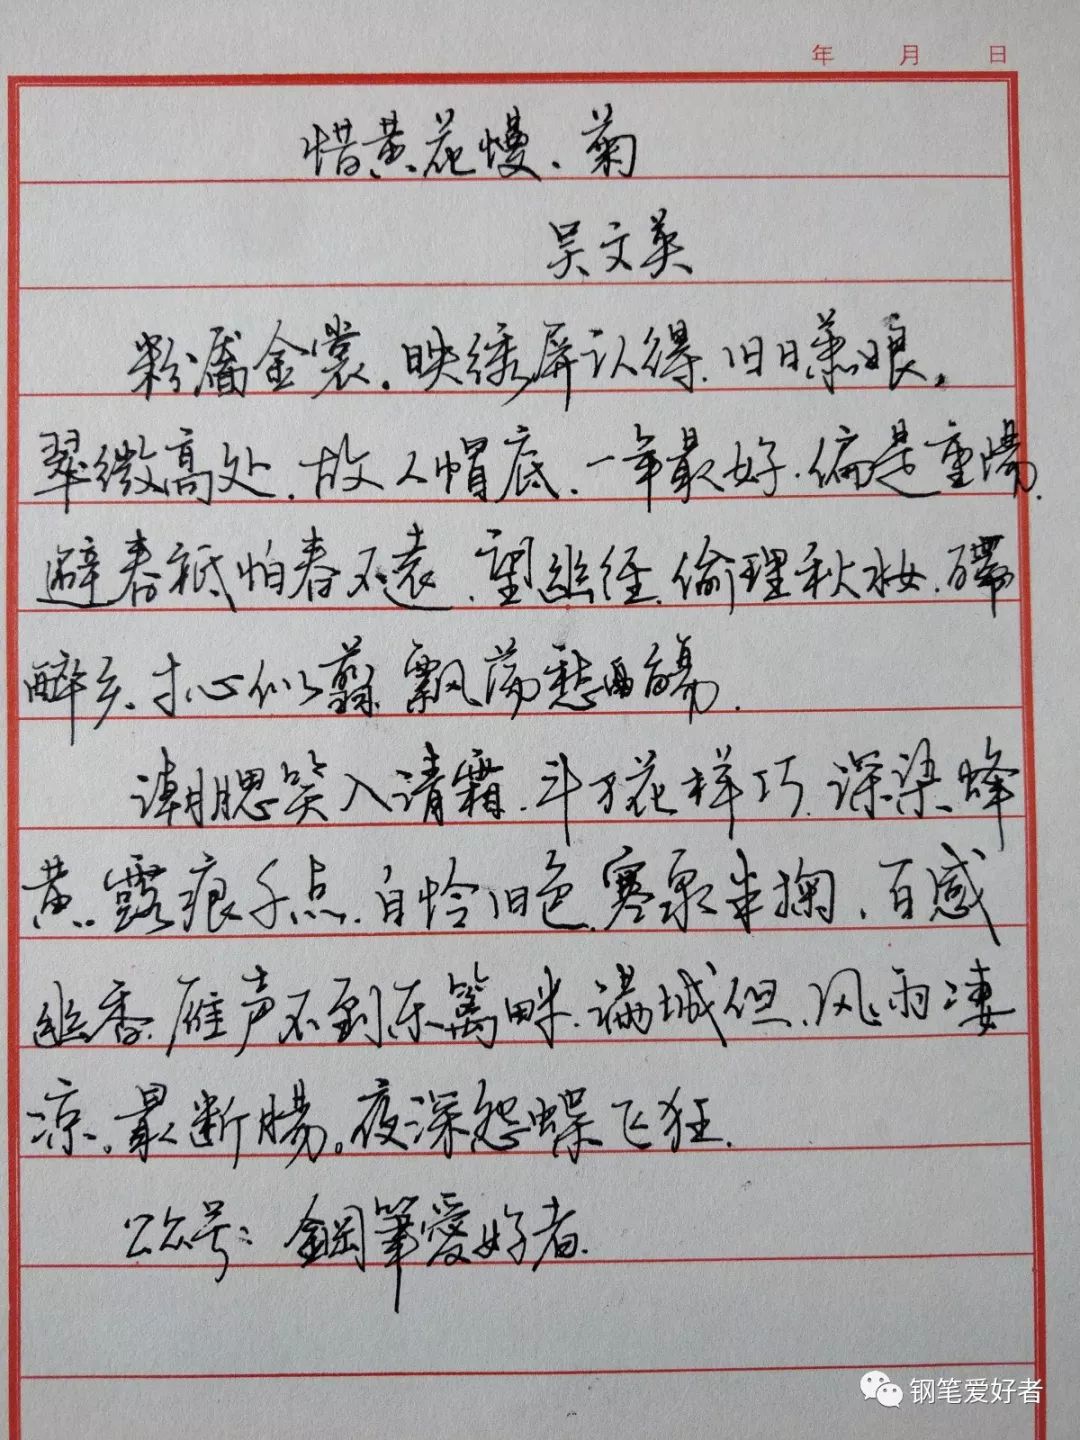 年 月 日
惜黄花慢、菊
吴文英
粉靥金裳。映绣屏认得、旧日萧娘。
翠微高处、故人帽底、一年最好、偏是重陽、
避春祇怕春不遠、望幽径、偷理秋妆、
醉乡、寸心似翦、飘荡愁觴、
潮腮笑入清霜、斗万花样巧、深染蜂
黄、露痕千点、自怜旧色、寒泉半掬、百感
幽香、雁声不到东篱畔、满城但、风雨凄
凉。最断腸。夜深怨蝶飞狂、
公众号：鋼筆愛好者、
钢笔爱好者